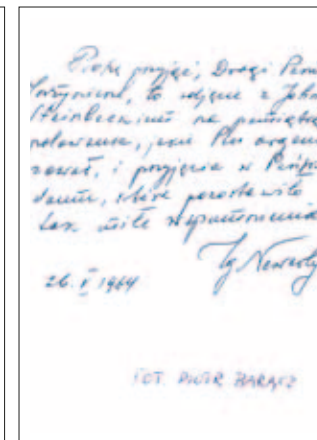 Proszę przyjąć, Drogi Panie
to zdjęcie z Johnem
Steinbeckiem na pamiątkę
polowania, jakie Pan organi-
zował, i przyjęcia w Pańskim
domu, które pozostawiło
tak miłe wspomnienia
Ig. Newerly
26. V 1964
FOT. PIOTR BARĄCZ